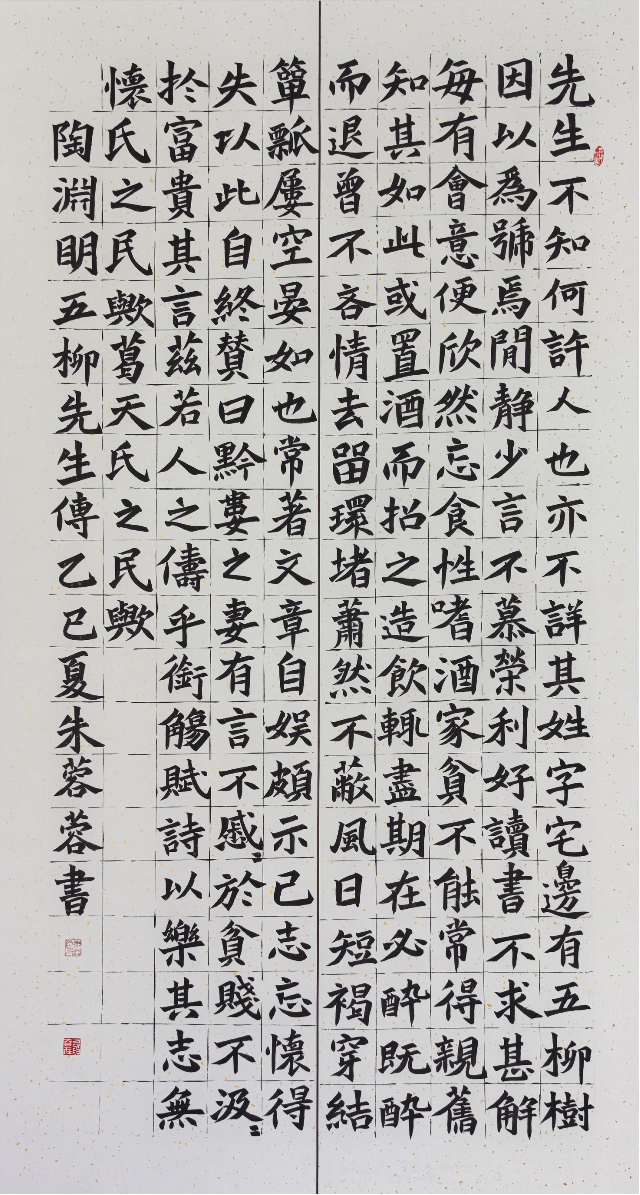 先生不知何許人也亦不詳其姓字宅邊有五柳樹
因以為號焉閒静少言不慕榮利好讀書不求甚解
每有會意便欣然忘食性嗜酒家貧不能常得親舊
知其如此或置酒而招之造飲輒盡期在必醉既醉
而退曾不吝情去留環堵蕭然不蔽風日短褐穿結
簞瓢屢空晏如也常著文章自娛頗示己志忘懷得
失以此自終贊曰黔婁之妻有言不戚〻於貧賤不汲〻
於富貴其言茲若人之儔乎銜觴賦詩以樂其志無
懷氏之民歟葛天氏之民歟
陶淵明五柳先生傳乙巳夏朱蓉蓉書